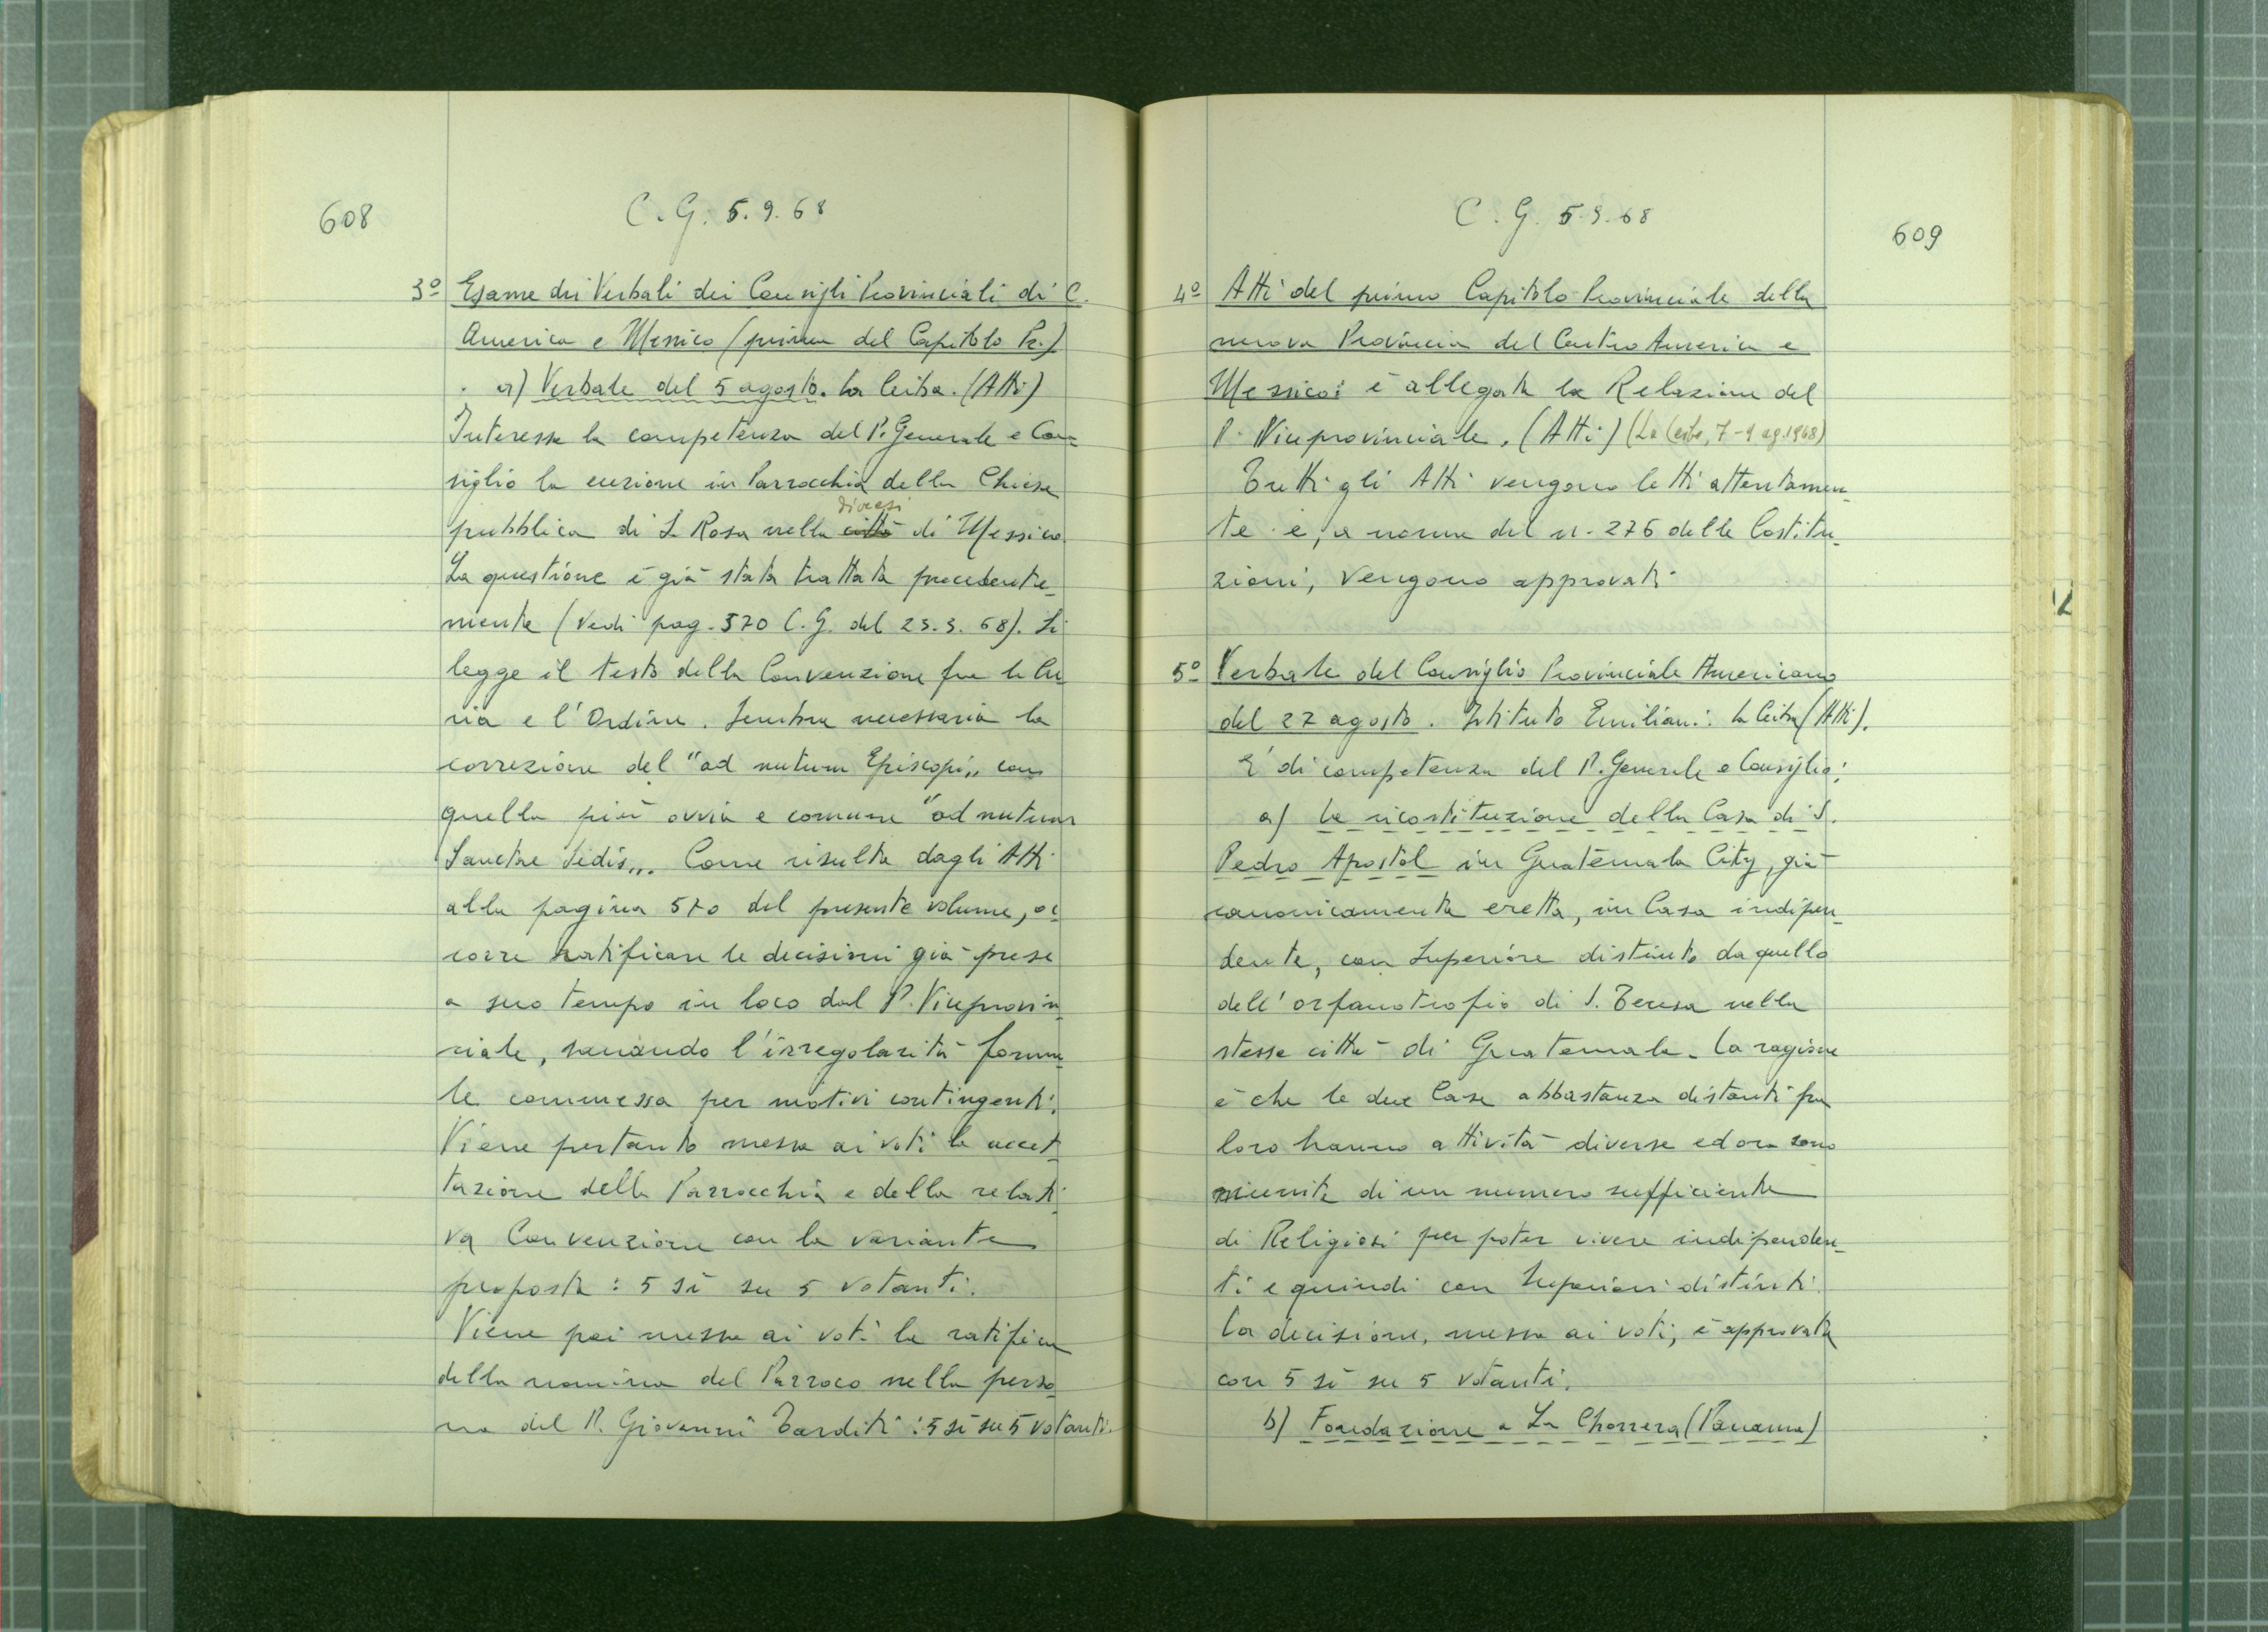 608
C. G. 5. 9. 68
3º Esame dei Verbali dei Consigli Provinciali di C.
America e Messico (prima del Capitolo Pr.)
a) Verbale del 5 agosto. La Ceiba. (Atti)
Interessa la competenza del P. Generale e Con=
siglio la erezione in Parrocchia della Chiesa
diocesi
pubblica di S. Rosa nella città di Messico
La questione è già stata trattata precedente_
mente (Vedi pag. 570 C. G. del 23. 5. 68). Si
legge il testo della Convenzione fra la Cu
ria e l'Ordine. Sembra necessaria la
correzione del "ad nutum Episcopi,, con
quella più ovvia e comune "ad nutum
Sanctae Sedis,,. Come risulta dagli Atti
alla pagina 570 del presente volume, oc
corre ratificare le decisioni già prese
a suo tempo in loco dal P. Viceprovin_
ciale, sanando l'irregolarità forma
le commessa per motivi contingenti.
Viene pertanto messa ai voti la accet
tazione della Parrocchia e della relati
va Convenzione con la variante
proposta : 5 sì su 5 votanti.
Viene poi messa ai voti la ratifica
della nomina del Parroco nella perso
na del P. Giovanni Tarditi : 5 sì su 5 votanti.
C. G. 5.9.68
609
4º Atti del primo Capitolo Provinciale della
nuova Provincia del Centro America e
Messico: è allegata la Relazione del
P. Viceprovinciale. (Atti) (La Ceiba, 7-9 ag. 1968)
Tutti gli Atti vengono letti attentamen_
te e, a norma del n. 276 delle Costitu_
zioni, vengono approvati
5º Verbale del Consiglio Provinciale Americano
del 27 agosto. Istituto Emiliani. La Ceiba (Atti).
E' di competenza del P. Generale e Consiglio:
a) La ricostituzione della Casa di S.
Pedro Apostol in Guatemala City, già
canonicamente eretta, in Casa indipen_
dente, con Superiore distinto da quello
dell'orfanotrofio di S. Teresa nella
stessa città di Guatemala. La ragione
è che le due Case abbastanza distanti fra
loro hanno attività diverse ed ora sono
munite di un numero sufficiente
di Religiosi per poter vivere indipenden_
ti e quindi con Superiori distinti.
La decisione, messa ai voti, è approvata
con 5 sì su 5 votanti.
b) Fondazione a La Chorrera (Panama)